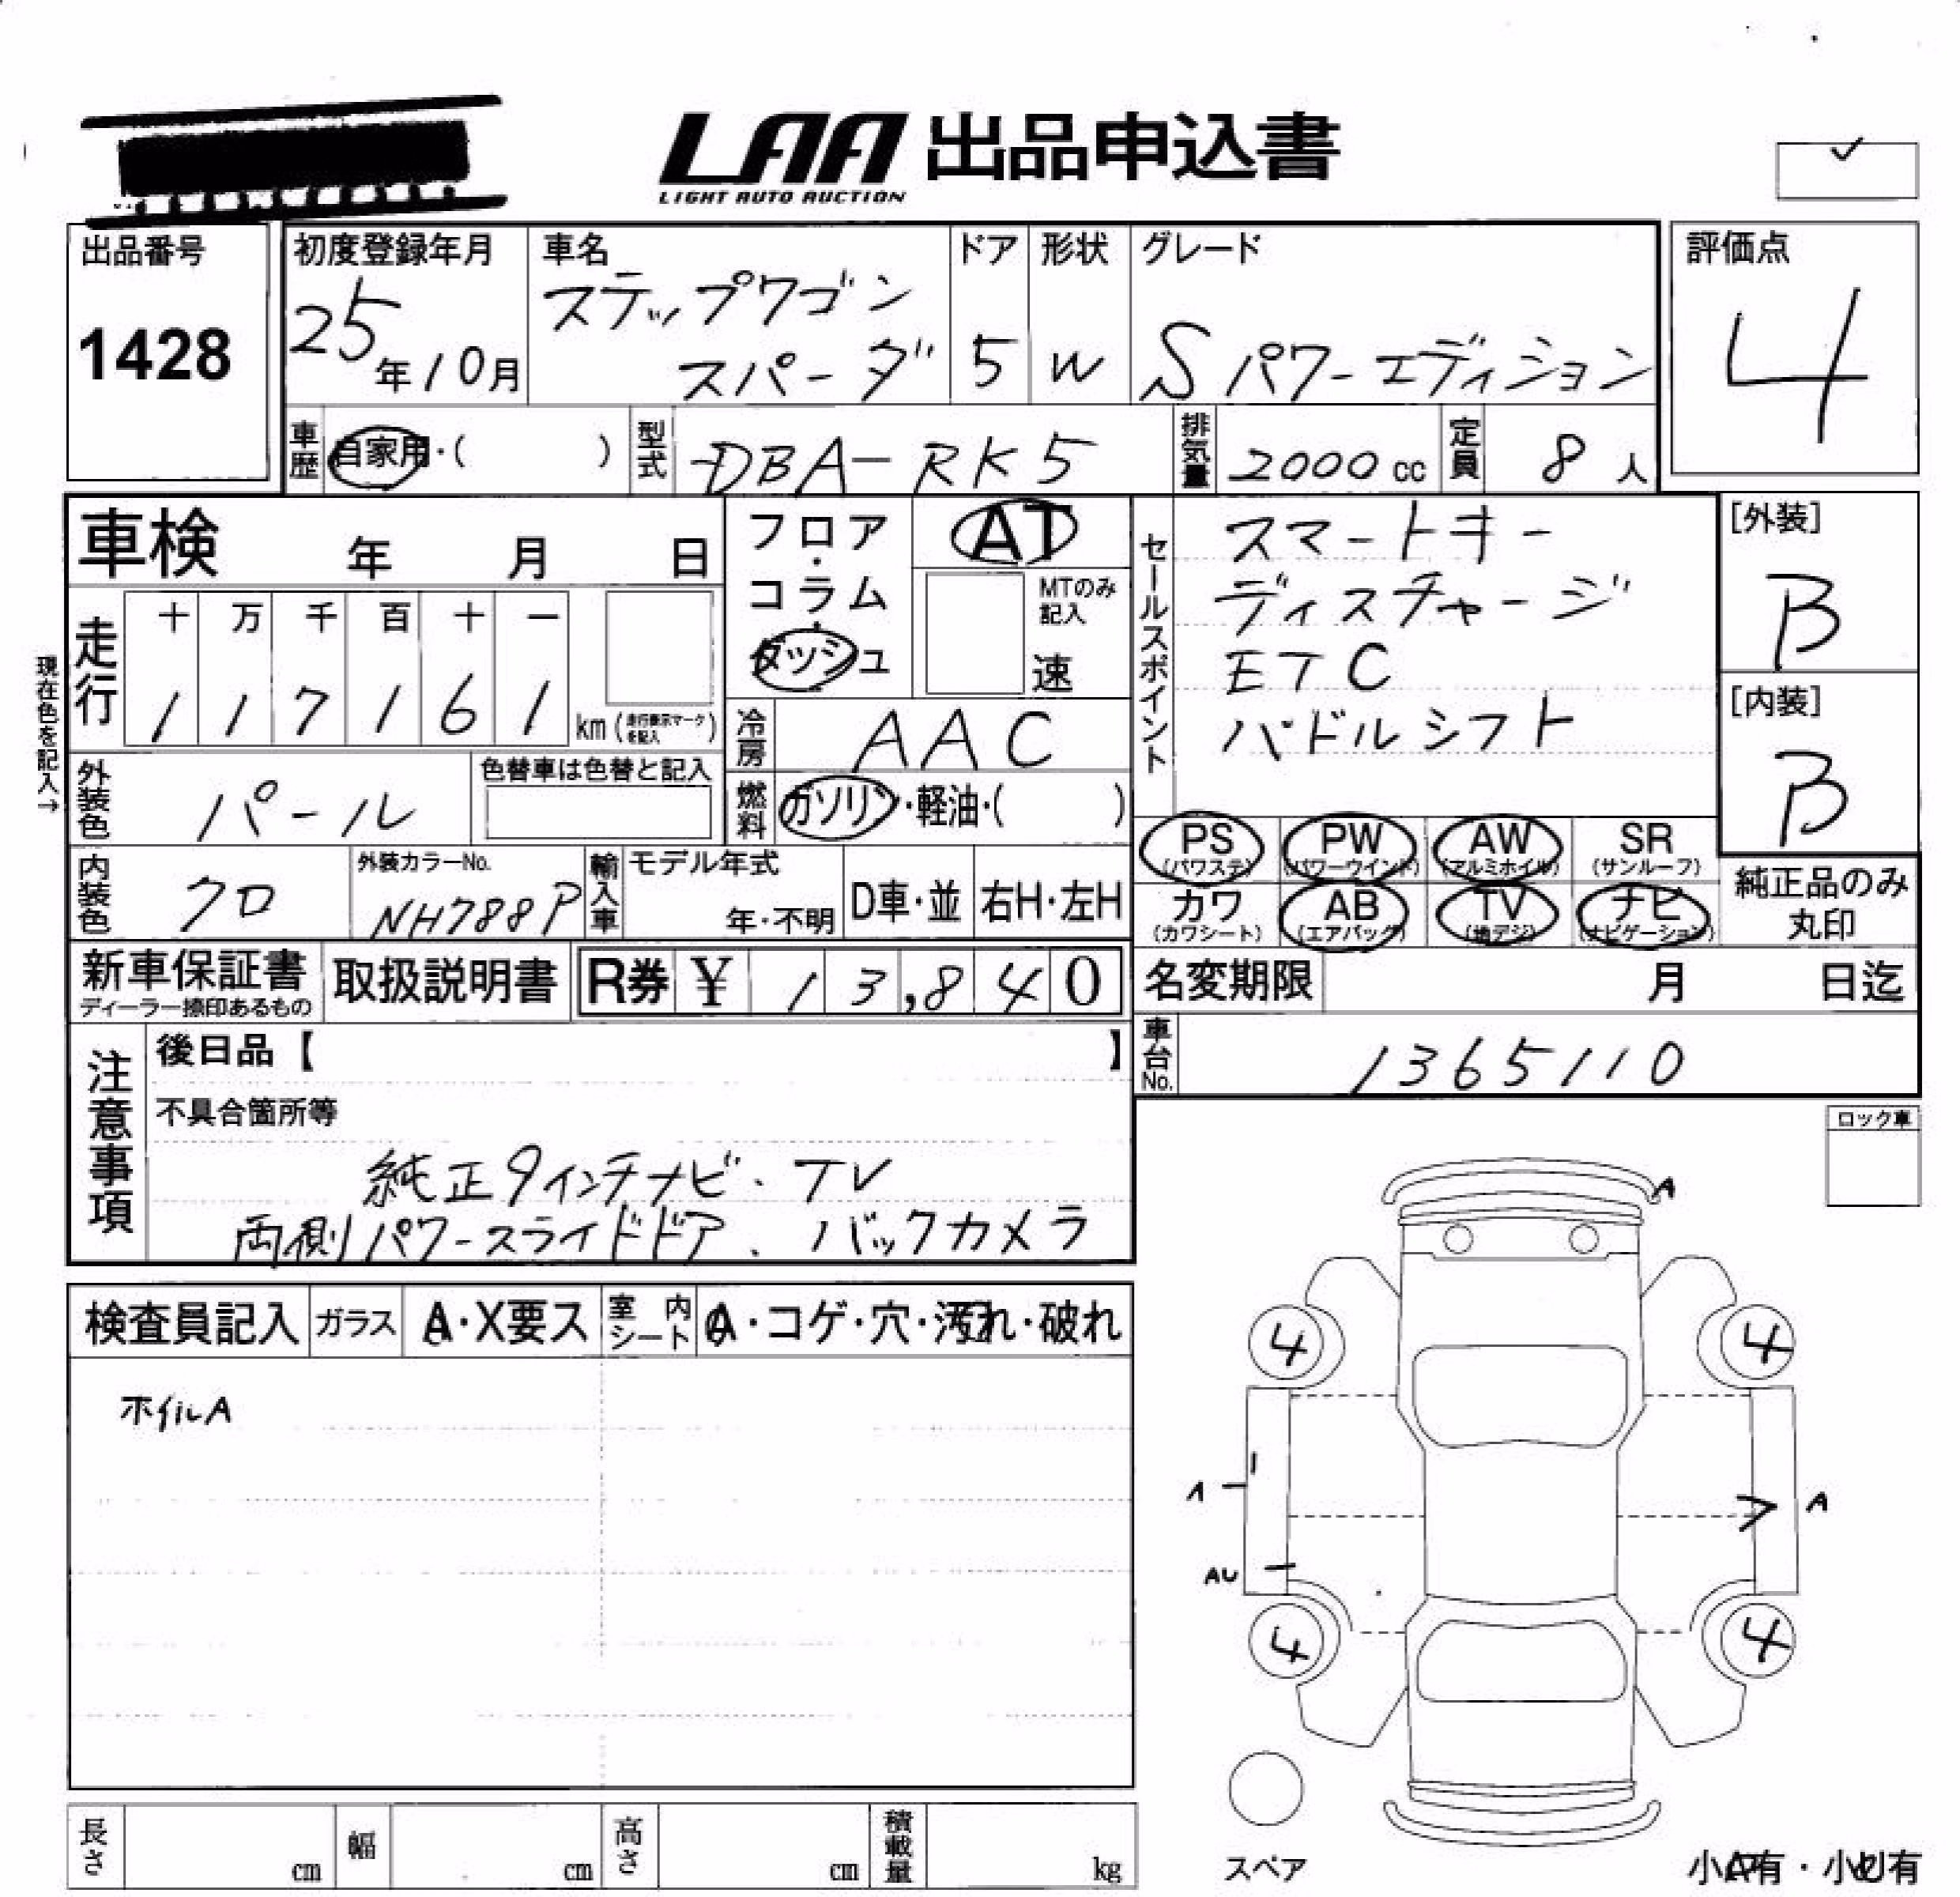 LAA 出品申込書
LIGHT AUTO AUCTION
出品番号
1428
初度登録年月
25年10月
車名
ステップワゴン
スパーダ
ドア
5
形状
W
グレード
Sパワーエディション
評価点
4
車歴 自家用・( )
型式 DBA-RK5
排気量 2000cc
定員 8人
車検 年 月 日
フロア・コラム・ダッシュ
AT
MTのみ記入
速
セールスポイント
スマートキー
ディスチャージ
ETC
パドルシフト
[外装]
B
[内装]
B
現在色を記入→
走行
十 万 千 百 十 一
1 1 7 1 6 1 km (走行表示マークを記入)
冷房 AAC
外装色 パール
色替車は色替と記入
燃料 ガソリン・軽油・( )
PS (パワステ) PW (パワーウインド) AW (アルミホイル) SR (サンルーフ)
カワ (カワシート) AB (エアバッグ) TV (地デジ) ナビ (ナビゲーション)
純正品のみ
丸印
内装色 クロ
外装カラーNo.
NH788P
輸入車
モデル年式
年・不明
D車・並
右H・左H
新車保証書
ディーラー捺印あるもの
取扱説明書
R券 ¥ 13,840
名変期限 月 日迄
車台No. 1365110
注意事項
後日品【 】
不具合箇所等
純正9インチナビ・TV
両側パワースライドドア、バックカメラ
ロック車
検査員記入 ガラス A・X要ス 室内シート A・コゲ・穴・汚れ・破れ
ホイルA
A
4 4
A A
AU
4 4
スペア
長さ cm 幅 cm 高さ cm 積載量 kg
小A有・小U有